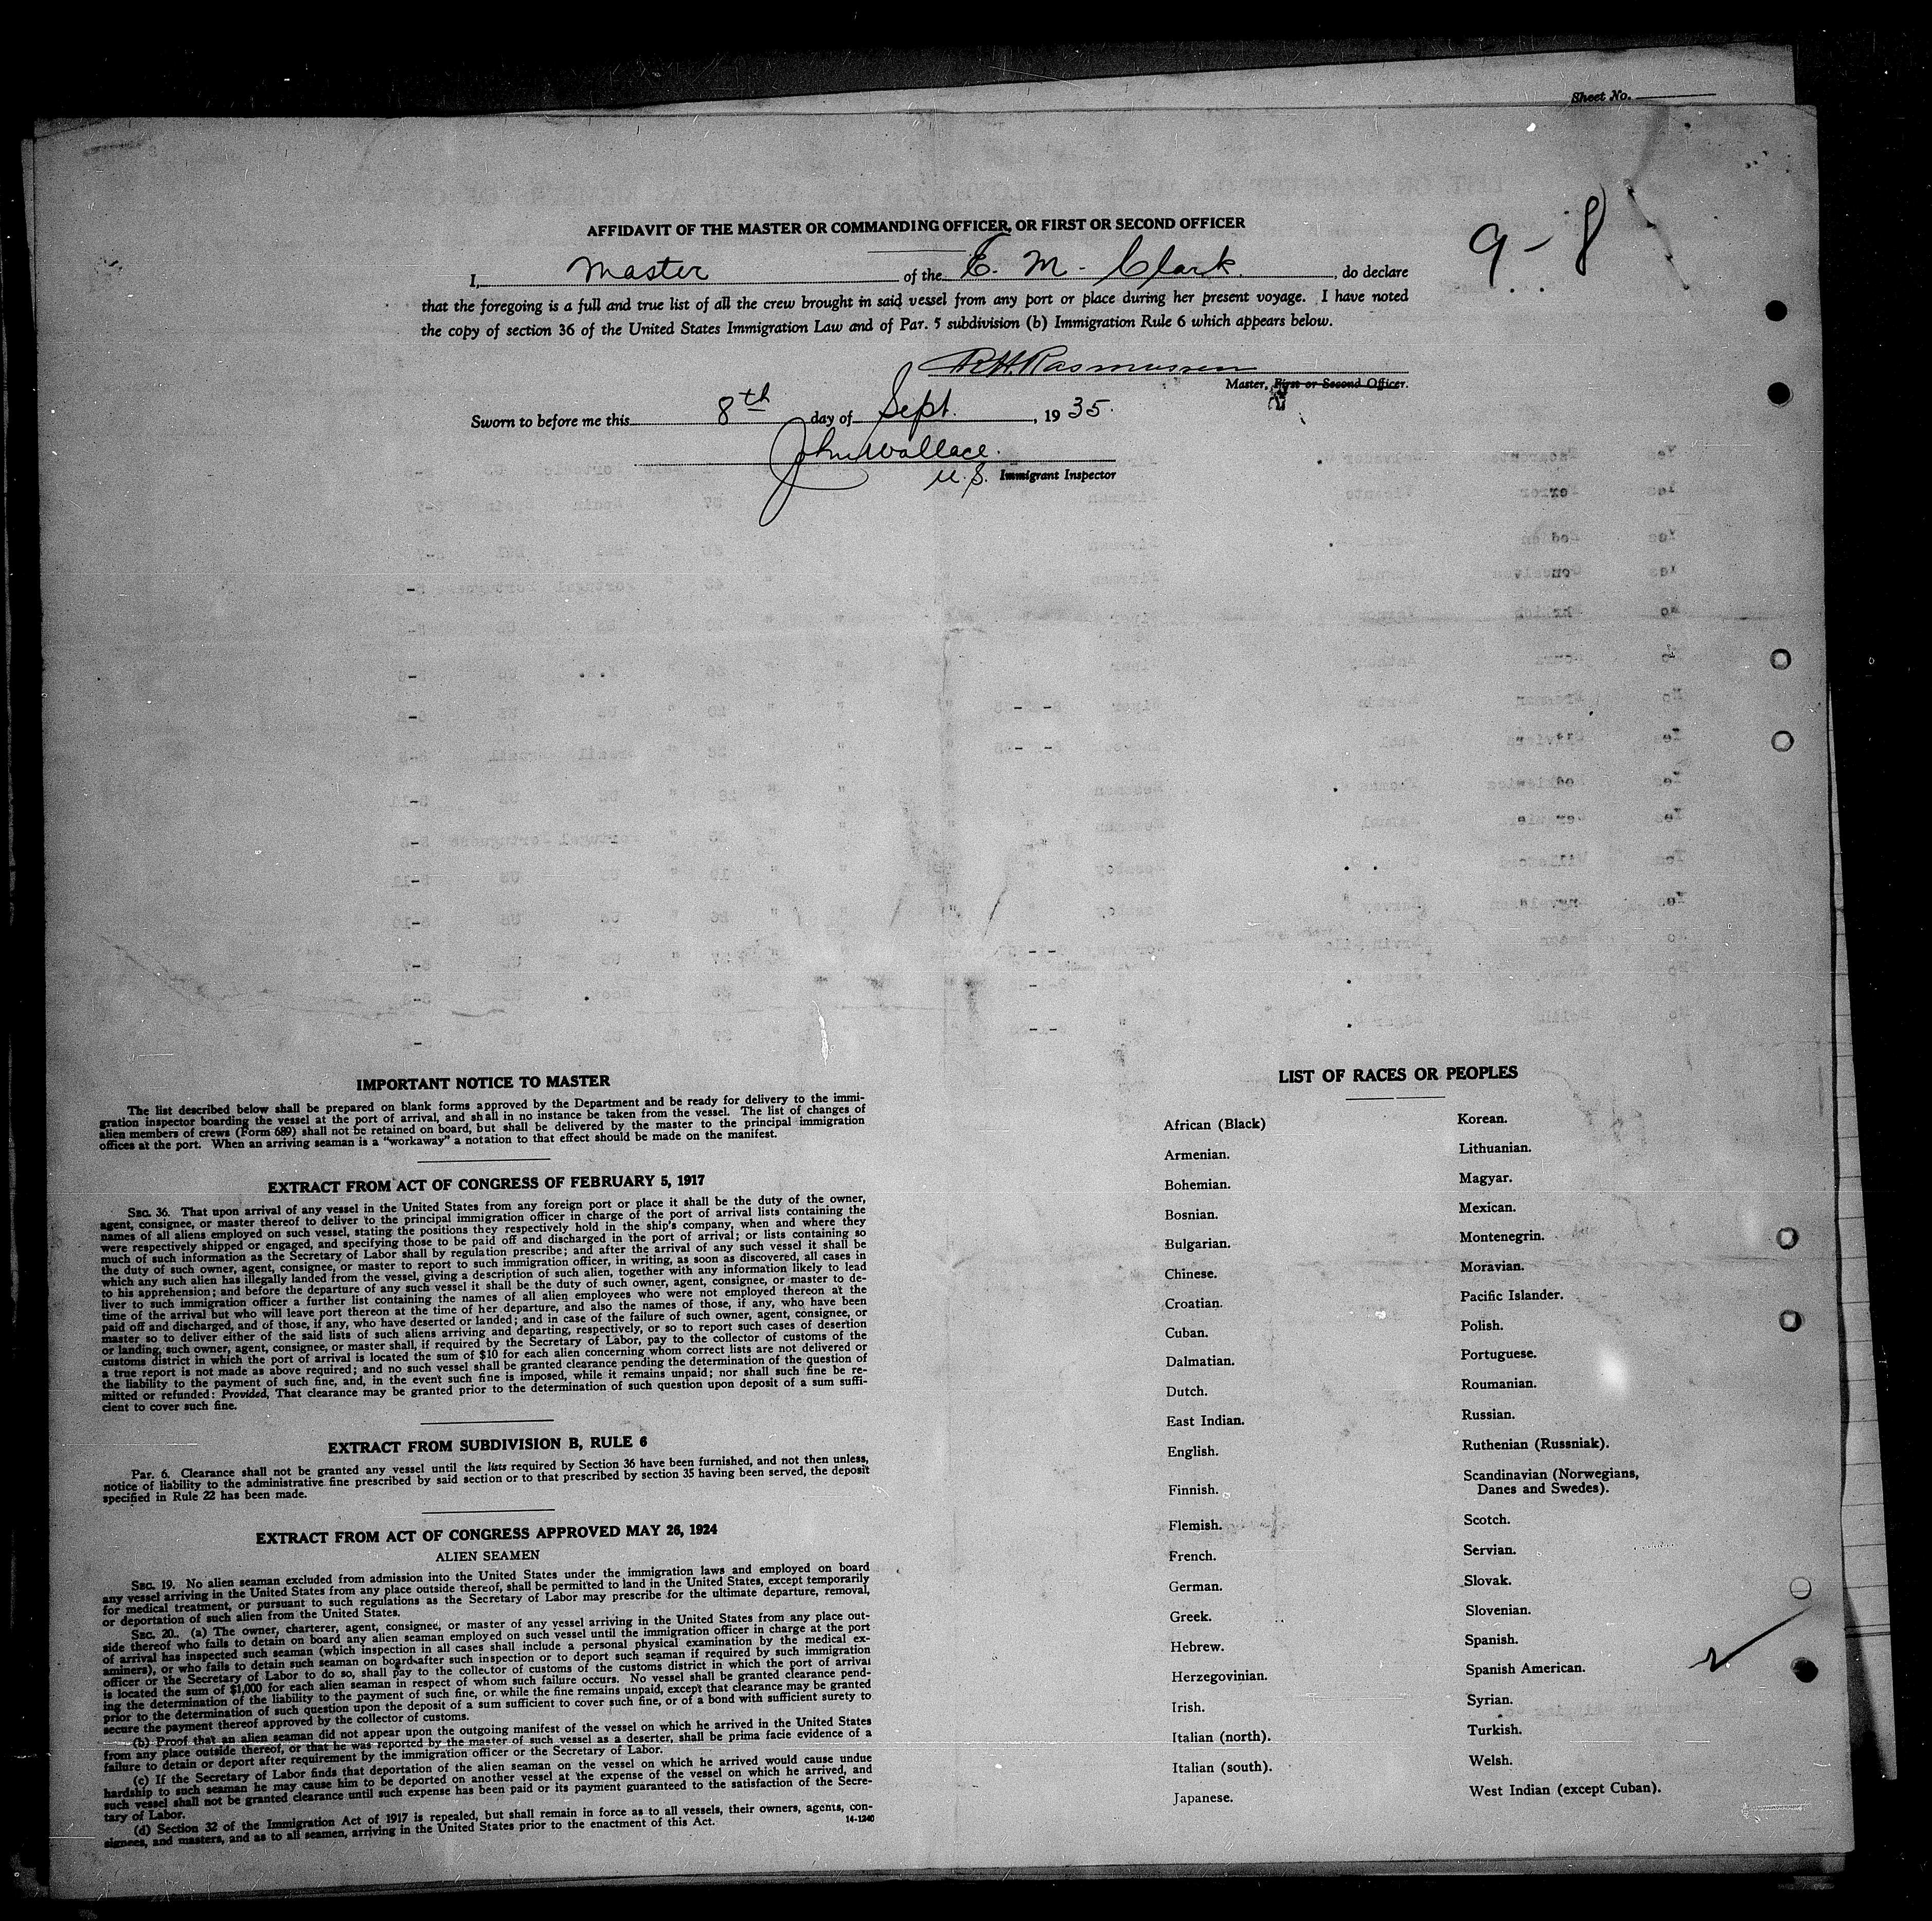 Sheet No.
AFFIDAVIT OF THE MASTER OR COMMANDING OFFICER, OR FIRST OR SECOND OFFICER
9-8
I, Master of the E. M. Clark, do declare
that the foregoing is a full and true list of all the crew brought in said vessel from any port or place during her present voyage. I have noted
the copy of section 36 of the United States Immigration Law and of Par. 5 subdivision (b) Immigration Rule 6 which appears below.
R.H. Rasmussen
Master, First or Second Officer.
Sworn to before me this 8th day of Sept., 1935.
John Wallace.
U.S. Immigrant Inspector
IMPORTANT NOTICE TO MASTER
The list described below shall be prepared on blank forms approved by the Department and be ready for delivery to the immi-
gration inspector boarding the vessel at the port of arrival, and shall in no instance be taken from the vessel. The list of changes of
alien members of crews (Form 689) shall not be retained on board, but shall be delivered by the master to the principal immigration
offices at the port. When an arriving seaman is a "workaway" a notation to that effect should be made on the manifest.
EXTRACT FROM ACT OF CONGRESS OF FEBRUARY 5, 1917
SEC. 36. That upon arrival of any vessel in the United States from any foreign port or place it shall be the duty of the owner,
agent, consignee, or master thereof to deliver to the principal immigration officer in charge of the port of arrival lists containing the
names of all aliens employed on such vessel, stating the positions they respectively hold in the ship's company, when and where they
were respectively shipped or engaged, and specifying those to be paid off and discharged in the port of arrival; or lists containing so
much of such information as the Secretary of Labor shall by regulation prescribe; and after the arrival of any such vessel it shall be
the duty of such owner, agent, consignee, or master to report to such immigration officer, in writing, as soon as discovered, all cases in
which any such alien has illegally landed from the vessel, giving a description of such alien, together with any information likely to lead
to his apprehension; and before the departure of any such vessel it shall be the duty of such owner, agent, consignee, or master to de-
liver to such immigration officer a further list containing the names of all alien employees who were not employed thereon at the
time of the arrival but who will leave port thereon at the time of her departure, and also the names of those, if any, who have been
paid off and discharged, and of those, if any, who have deserted or landed; and in case of the failure of such owner, agent, consignee, or
master so to deliver either of the said lists of such aliens arriving and departing, respectively, or so to report such cases of desertion
or landing, such owner, agent, consignee, or master shall, if required by the Secretary of Labor, pay to the collector of customs of the
customs district in which the port of arrival is located the sum of $10 for each alien concerning whom correct lists are not delivered or
a true report is not made as above required; and no such vessel shall be granted clearance pending the determination of the question of
the liability to the payment of such fine, and, in the event such fine is imposed, while it remains unpaid; nor shall such fine be re-
mitted or refunded: Provided, That clearance may be granted prior to the determination of such question upon deposit of a sum suffi-
cient to cover such fine.
EXTRACT FROM SUBDIVISION B, RULE 6
Par. 6. Clearance shall not be granted any vessel until the lists required by Section 36 have been furnished, and not then unless,
notice of liability to the administrative fine prescribed by said section or to that prescribed by section 35 having been served, the deposit
specified in Rule 22 has been made.
EXTRACT FROM ACT OF CONGRESS APPROVED MAY 26, 1924
ALIEN SEAMEN
SEC. 19. No alien seaman excluded from admission into the United States under the immigration laws and employed on board
any vessel arriving in the United States from any place outside thereof, shall be permitted to land in the United States, except temporarily
for medical treatment, or pursuant to such regulations as the Secretary of Labor may prescribe for the ultimate departure, removal,
or deportation of such alien from the United States.
SEC. 20. (a) The owner, charterer, agent, consignee, or master of any vessel arriving in the United States from any place out-
side thereof who fails to detain on board any alien seaman employed on such vessel until the immigration officer in charge at the port
of arrival has inspected such seaman (which inspection in all cases shall include a personal physical examination by the medical ex-
aminers), or who fails to detain such seaman on board after such inspection or to deport such seaman if required by such immigration
officer or the Secretary of Labor to do so, shall pay to the collector of customs of the customs district in which the port of arrival
is located the sum of $1,000 for each alien seaman in respect of whom such failure occurs. No vessel shall be granted clearance pend-
ing the determination of the liability to the payment of such fine, or while the fine remains unpaid, except that clearance may be granted
prior to the determination of such question upon the deposit of a sum sufficient to cover such fine, or of a bond with sufficient surety to
secure the payment thereof approved by the collector of customs.
(b) Proof that an alien seaman did not appear upon the outgoing manifest of the vessel on which he arrived in the United States
from any place outside thereof, or that he was reported by the master of such vessel as a deserter, shall be prima facie evidence of a
failure to detain or deport after requirement by the immigration officer or the Secretary of Labor.
(c) If the Secretary of Labor finds that deportation of the alien seaman on the vessel on which he arrived would cause undue
hardship to such seaman he may cause him to be deported on another vessel at the expense of the vessel on which he arrived, and
such vessel shall not be granted clearance until such expense has been paid or its payment guaranteed to the satisfaction of the Secre-
tary of Labor.
(d) Section 32 of the Immigration Act of 1917 is repealed, but shall remain in force as to all vessels, their owners, agents, con-
signees, and masters, and as to all seamen, arriving in the United States prior to the enactment of this Act.
14-1240
LIST OF RACES OR PEOPLES
African (Black)
Armenian.
Bohemian.
Bosnian.
Bulgarian.
Chinese.
Croatian.
Cuban.
Dalmatian.
Dutch.
East Indian.
English.
Finnish.
Flemish.
French.
German.
Greek.
Hebrew.
Herzegovinian.
Irish.
Italian (north).
Italian (south).
Japanese.
Korean.
Lithuanian.
Magyar.
Mexican.
Montenegrin.
Moravian.
Pacific Islander.
Polish.
Portuguese.
Roumanian.
Russian.
Ruthenian (Russniak).
Scandinavian (Norwegians,
Danes and Swedes).
Scotch.
Servian.
Slovak.
Slovenian.
Spanish.
Spanish American.
Syrian.
Turkish.
Welsh.
West Indian (except Cuban).